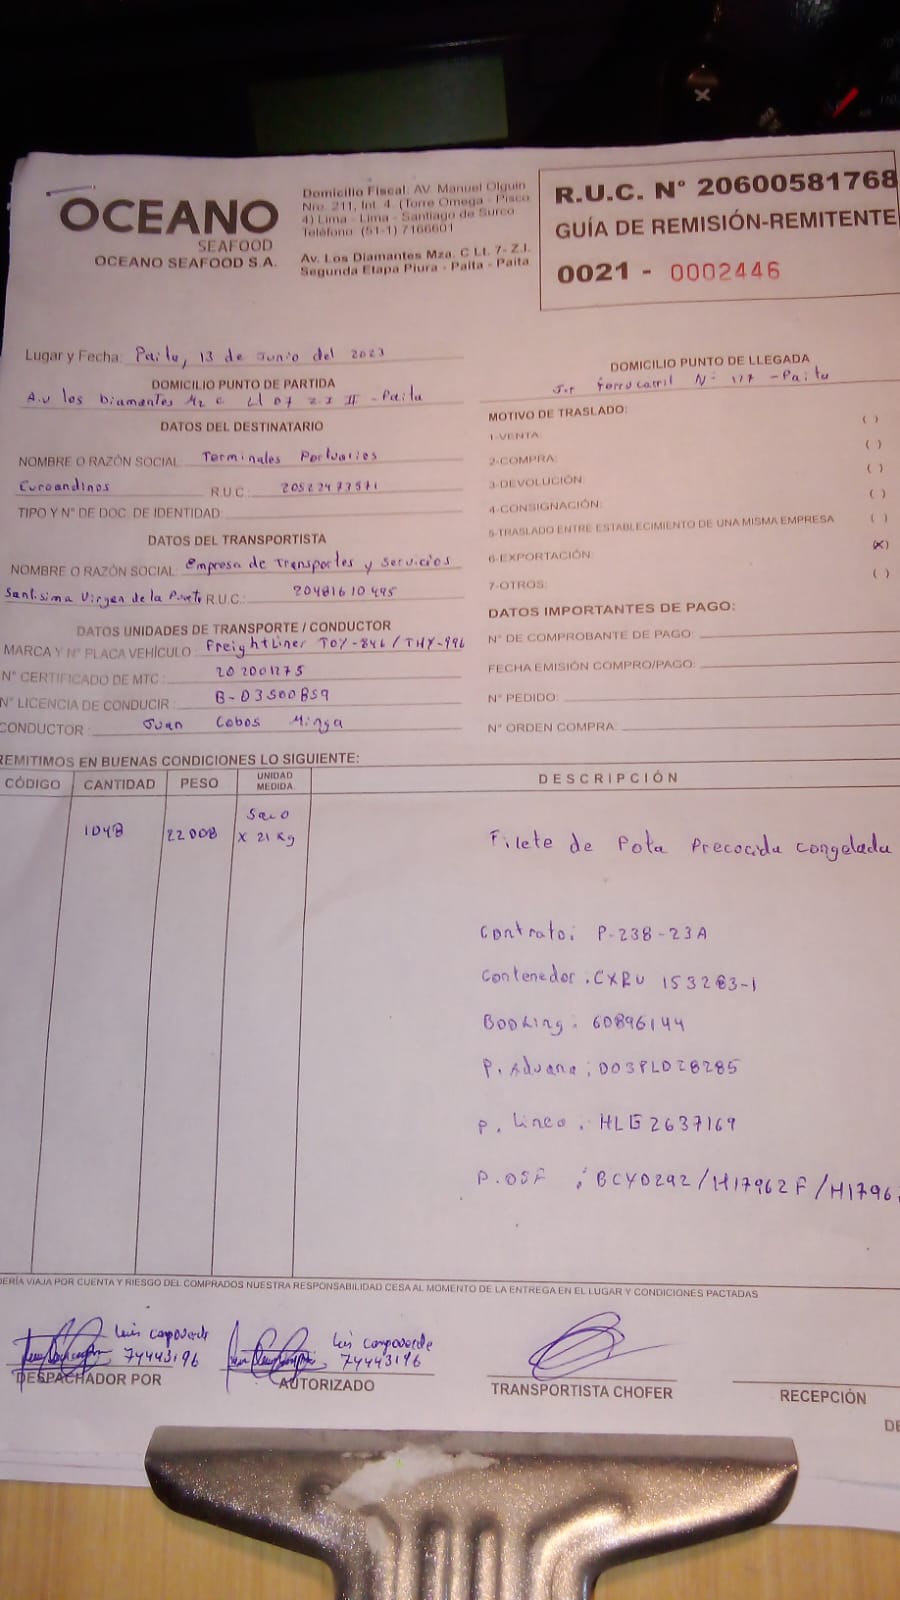 OCEANO
SEAFOOD
OCEANO SEAFOOD S.A.
Domicilio Fiscal: AV. Manuel Olguin
Nro. 211, Int. 4. (Torre Omega - Pisco
4) Lima - Lima - Santiago de Surco
Teléfono: (51-1) 7166601
Av. Los Diamantes Mza. C Lt. 7- Z.I.
Segunda Etapa Piura - Paita - Paita
R.U.C. N° 20600581768
GUÍA DE REMISIÓN-REMITENTE
0021 - 0002446
Lugar y Fecha: Paita, 13 de Junio del 2023
DOMICILIO PUNTO DE PARTIDA
A.v los Diamantes Mz C Lt 07 Z.I II - Paita
DOMICILIO PUNTO DE LLEGADA
Jr. Ferrocarril N° 177 - Paita
DATOS DEL DESTINATARIO
NOMBRE O RAZÓN SOCIAL Terminales Portuarios
Euroandinos R.U.C.: 20522473571
TIPO Y N° DE DOC. DE IDENTIDAD:
DATOS DEL TRANSPORTISTA
NOMBRE O RAZÓN SOCIAL: Empresa de Transportes y Servicios
Santisima Virgen de la Puerta R.U.C.: 20481610495
DATOS UNIDADES DE TRANSPORTE / CONDUCTOR
MARCA Y N° PLACA VEHÍCULO : FreightLiner T0Y-846 / THY-996
N° CERTIFICADO DE MTC : 202001275
N° LICENCIA DE CONDUCIR : B-03500859
CONDUCTOR : Juan Cobos Minga
MOTIVO DE TRASLADO:
1-VENTA: ( )
2-COMPRA: ( )
3-DEVOLUCIÓN: ( )
4-CONSIGNACIÓN: ( )
5-TRASLADO ENTRE ESTABLECIMIENTO DE UNA MISMA EMPRESA ( )
6-EXPORTACIÓN: (X)
7-OTROS: ( )
DATOS IMPORTANTES DE PAGO:
N° DE COMPROBANTE DE PAGO:
FECHA EMISIÓN COMPRO/PAGO:
N° PEDIDO:
N° ORDEN COMPRA:
REMITIMOS EN BUENAS CONDICIONES LO SIGUIENTE:
CÓDIGO CANTIDAD PESO UNIDAD MEDIDA. DESCRIPCIÓN
Saco
1048 22008 X 21 Kg Filete de Pota Precocida congelada
Contrato: P-238-23A
Contenedor: CXRU 153283-1
Booking: 60896144
P. Aduana: 003PLD28285
P. Linea: HLG2637169
P. OSF : BCY0292/H17962F/H1796
DERÍA VIAJA POR CUENTA Y RIESGO DEL COMPRADOS NUESTRA RESPONSABILIDAD CESA AL MOMENTO DE LA ENTREGA EN EL LUGAR Y CONDICIONES PACTADAS
Luis Campoverde
74443196
DESPACHADOR POR
Luis Campoverde
74443196
AUTORIZADO
TRANSPORTISTA CHOFER
RECEPCIÓN
DE